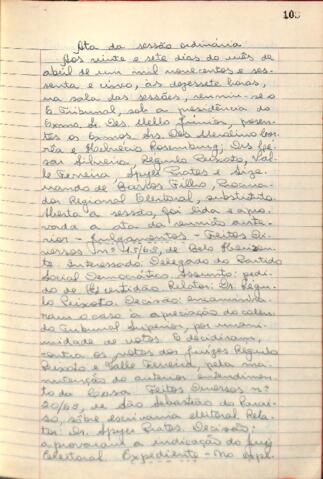 108
Ata da sessão ordinária
Aos vinte e sete dias do mês de
abril de um mil novecentos e ses-
senta e cinco, às dezessete horas,
na sala das sessões, reuniu-se o
E. Tribunal, sob a presidência do
Exmo. Sr. Des. Mello Júnior, presen-
tes os Exmos. Srs. Des. Merolino Cor-
rêa e Helvécio Rosenburg; Drs. Cé-
sar Silveira, Régulo Peixoto, Val-
le Ferreira, Spyer Prates e Size-
nando de Barros Filho, Procura-
dor Regional Eleitoral, substituto.
Aberta a sessão, foi lida e apro-
vada a ata da reunião ante-
rior - Julgamentos - Feitos Di-
versos nº 15/65, de Belo Horizon-
te. Interessado: Delegado do Partido
Social Democrático. Assunto: pedi-
do de certidão. Relator: Dr. Régu-
lo Peixoto. Decisão: encaminha-
ram o caso à apreciação do colen-
do Tribunal Superior, por unani-
midade de votos. E decidiram,
contra os votos dos juízes Régulo
Peixoto e Valle Ferreira, pela ma-
nutenção do anterior entendimen-
to da Casa. Feitos Diversos nº
20/65, de São Sebastião do Paraí-
so, sôbre escrivania eleitoral. Rela-
tor: Dr. Spyer Prates. Decisão:
aprovaram a indicação do Juiz
Eleitoral. Expediente - No expe-